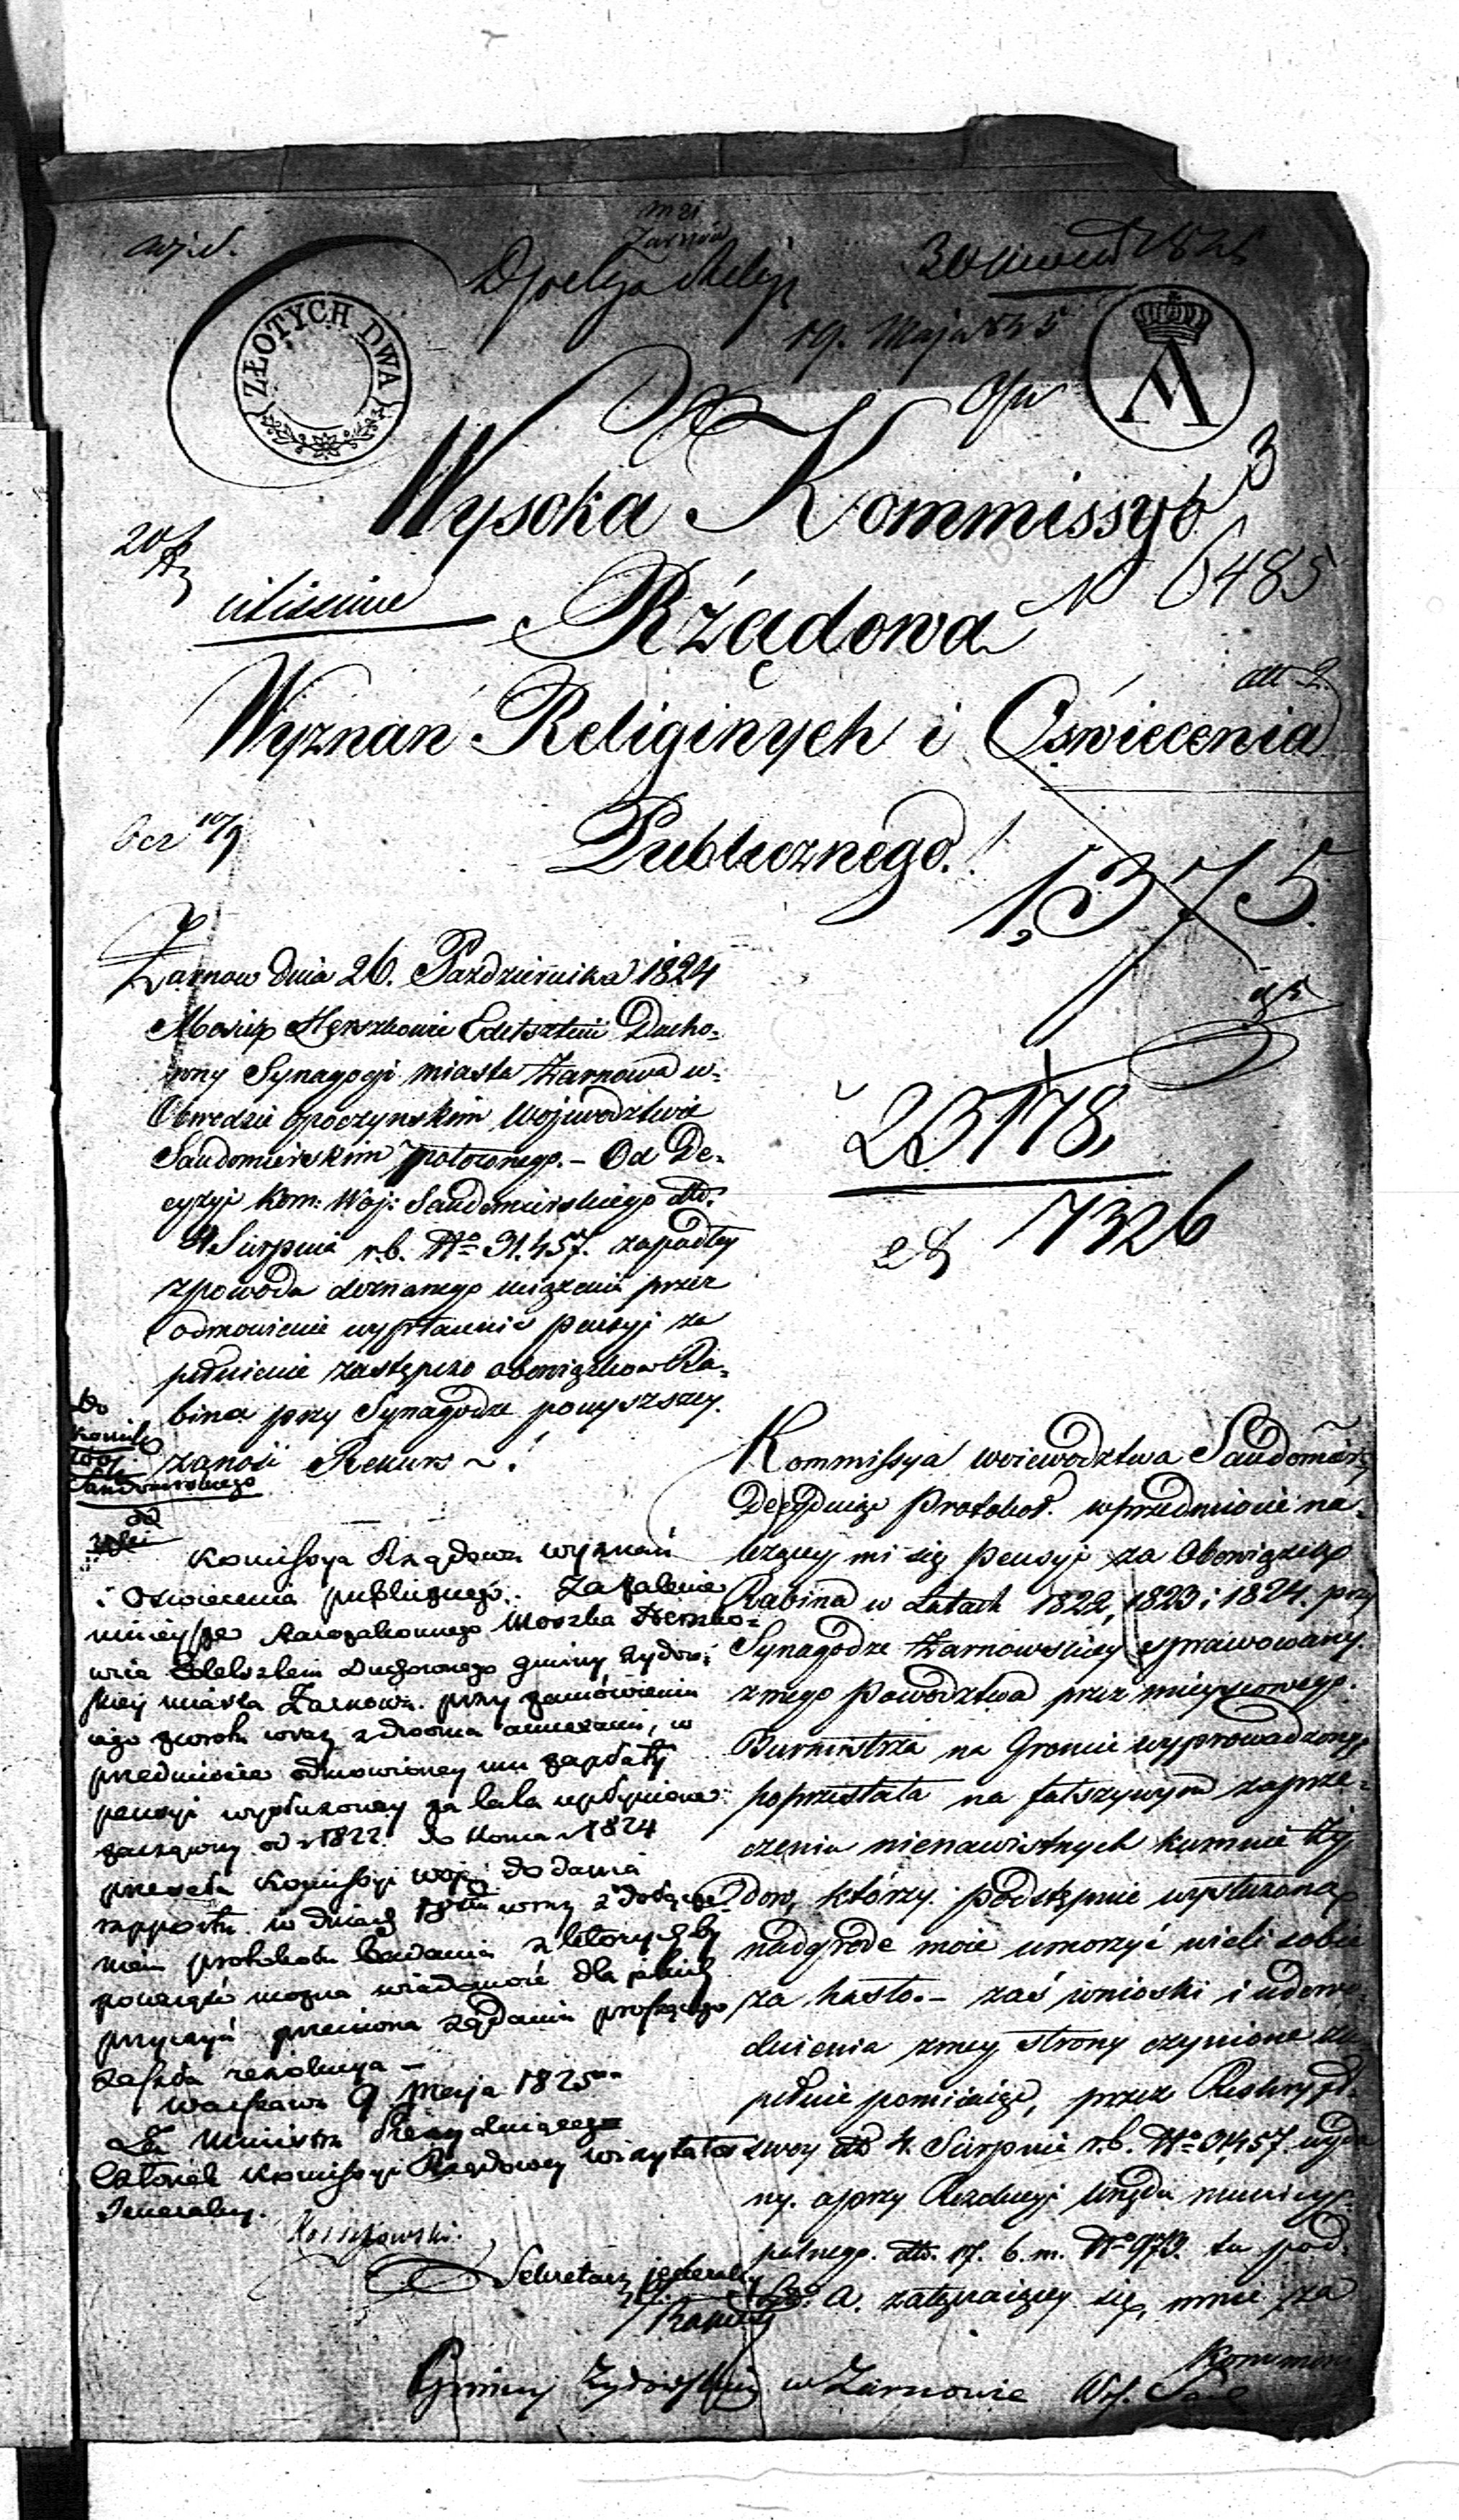 Żarnów
Wydz. Religij
19. Maja 1825
ZŁOTYCH DWA
A
3
Wysoka Kommissyo
citissime
Rządowa
N 6485
Wyznań Religinych i Oświecenia
Publicznego!
1,375
23178,
7326
Żarnow dnia 26. Pazdziernika 1824
Mosiek Herszkowic Edelsztein Ducho-
wny Synagogi miasta Żarnowa w-
Obwodzie Opoczynskim Wojewodztwie
Sandomierskim położonego. – Od De-
cyzyi Kom: Woj: Sandomirskiego dto.
4 Sierpnia r.b. No 31.457. zapadłey
z powodu doznanego uciążenia przez
odmowienie wypłacenia pensyi za
pełnienie zastępczo obowiązkow Ra-
bina przy Synagodze powyszszey.
zanosi Rekurs ~!
Do
Komiss
Woj:
Sandomirskiego
Komissya Rządowa wyznań
i Oswiecenia publicznego. Zażalenie
ninieysze Starozakonnego Moszka Herszko-
wica Edelsztein Duchownego gminy żydow-
skiey miasta Żarnowa. przy zamówieniu
iego zwrotu wraz z dwoma annexami, w
przedmiocie odmowioney mu zapłaty
pensyi wysłużoney za lata upłynione
zacząwszy od r 1822. do konca r 1824
przesyła Komissyi woj: do dania
rapportu w dniach 18tu wraz z dołącze-
niem protokołu badania z których by
powziąść można wiadomość dla jakich
przyczyn przeciwna żądaniu proszącego
zaszła rezolucya –
Warszawa 9. Maja 1825
Za Ministra Prezyduiącego
Członek Komissyi Rządowey Wizytator
Jeneralny.
Sekretarz jeneralny
Kommissya Woiewodztwa Sandomirs
Decyduiąc Protokoł. w przedmiocie na-
leżącey mi się Pensyi za Obowiązek
Rabina w Latach 1822, 1823 i 1824. przy
Synagodze Żarnowskiey sprawowany.
z mego Powodztwa przez mieyscowego.
Burmistrza na Gróncie wyprowadzony,
poprzestała na fałszywym zaprze-
czeniu nienawistnych kumnie Ży-
dow, którzy. podstępnie wysłużoną
nadgrodę moie umorzyć wzieli sobie
za hasło. – zaś wnioski i udowo-
dnienia z mey strony czynione zu-
pełnie pomiiaiąc, przez Reskrypt
swoy dto 4. Sierpnia r.b. No 31457. wyda
ny. a przy Rezolucyi Urzędu municy-
palnego. dto. 17. b. m. No 973. tu pod.
Lit: a. załączaiącey się, mnie za
Gminy Żydowskiey w Żarnowie Woj. Sand